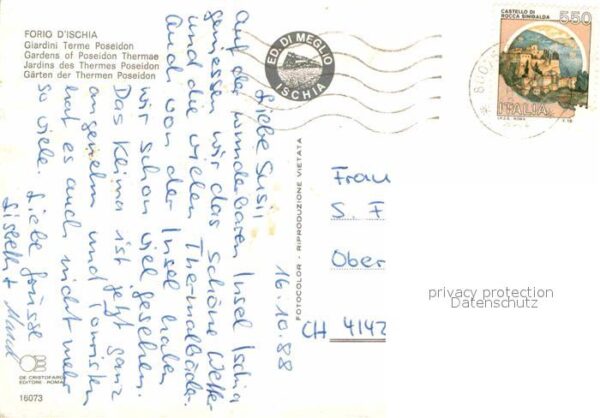 FORIO D'ISCHIA
Giardini Terme Poseidon
Gardens of Poseidon Thermae
Jardins des Thermes Poseidon
Gärten der Thermen Poseidon
ED. DI MEGLIO
ISCHIA
CASTELLO DI
ROCCA SINIBALDA
550
ITALIA
16.10.88
Liebe Susi!
auf der wunderbaren Insel Ischia
geniessen wir das schöne Wetter
und die vielen Thermalbäder.
Auch von der Insel haben
wir schon viel gesehen.
Das Klima ist jetzt ganz
angenehm und Touristen
hat es auch nicht mehr
so viele. Liebe Grüsse
FOTOCOLOR - RIPRODUZIONE VIETATA
Frau
S. F
Ober
CH 4142
privacy protection
Datenschutz
DE CRISTOFARO
EDITORE - ROMA
16073